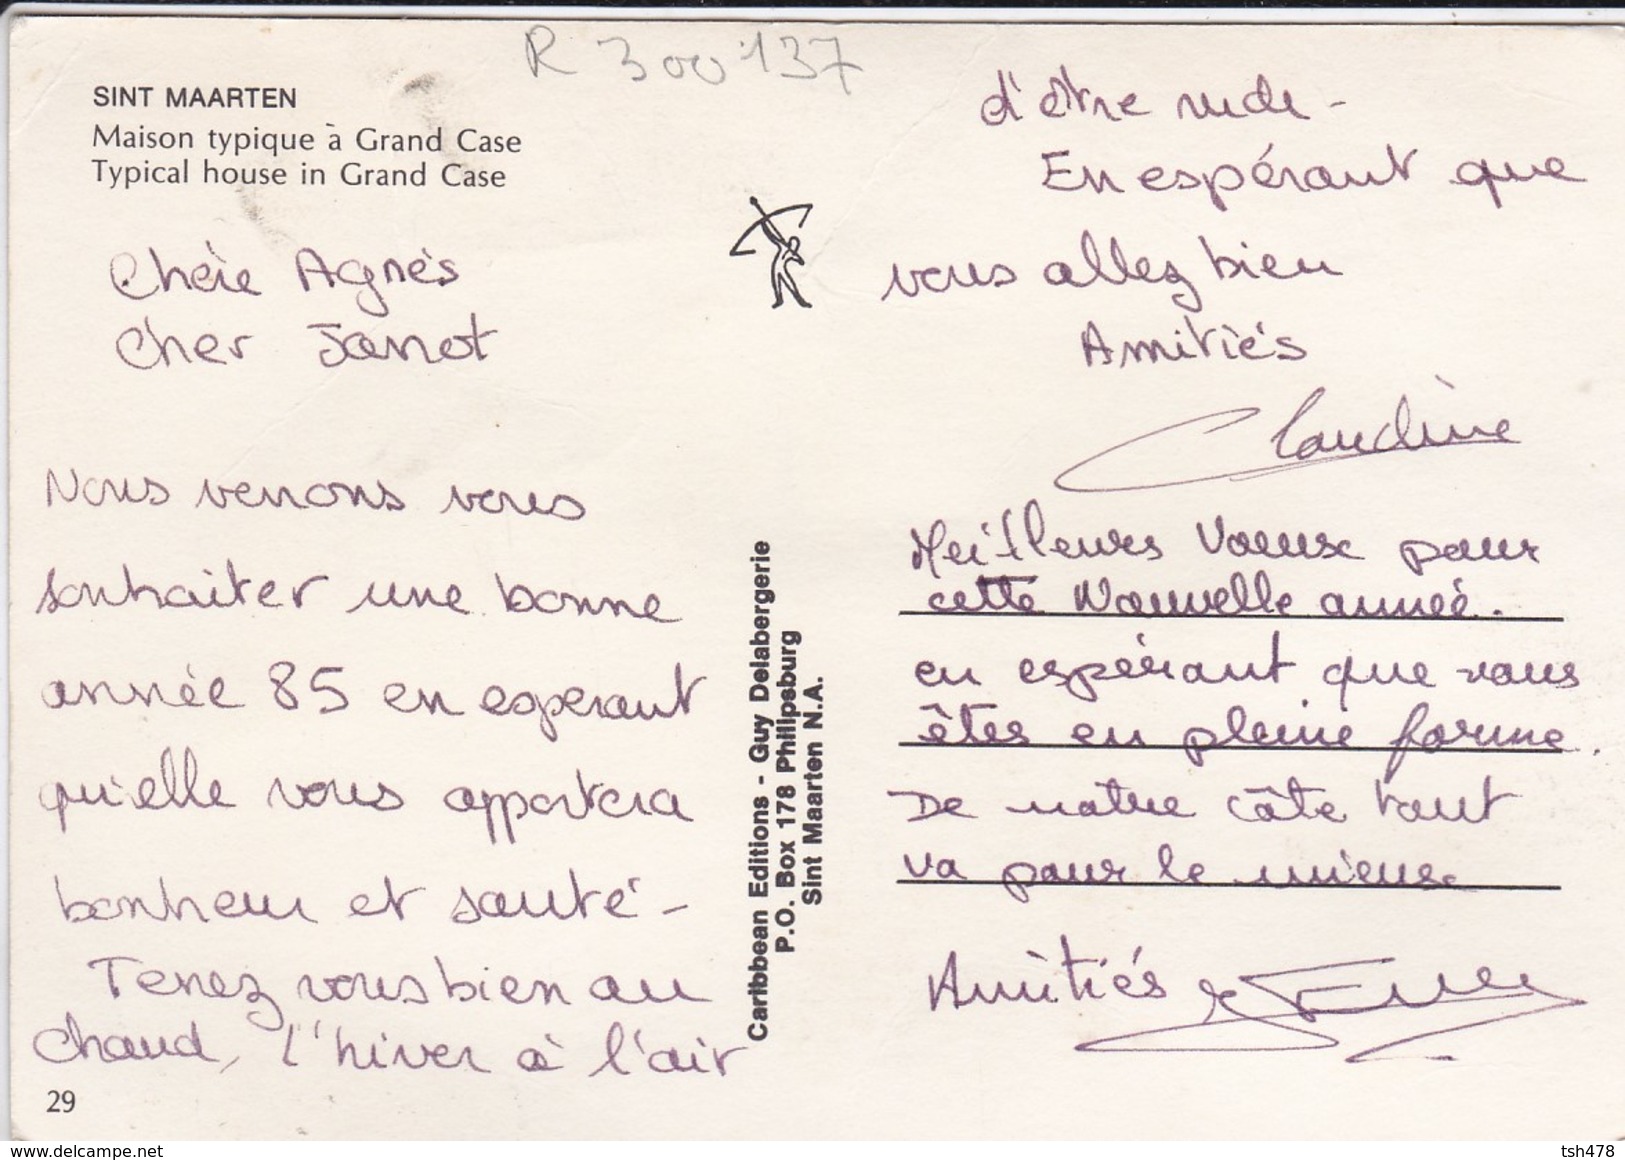 R 300137
SINT MAARTEN
Maison typique à Grand Case
Typical house in Grand Case
Chère Agnès
Cher Janot
Nous venons vous
souhaiter une bonne
année 85 en esperant
qu'elle vous apportera
bonheur et santé -
Tenez vous bien au
chaud, l'hiver à l'air
29
Caribbean Editions - Guy Delabergerie
P.O. Box 178 Philipsburg
Sint Maarten N.A.
d'être rude -
En espérant que
vous allez bien
Amitiés
Claudine
Meilleurs Voeux pour
cette Nouvelle année.
en espérant que vous
êtes en pleine forme.
De notre côte tout
va pour le mieux
Amitiés
delcampe.net
tsh478